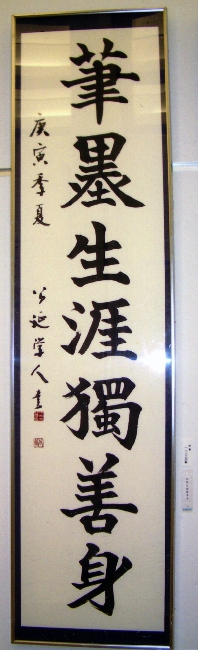 筆墨生涯獨善身
庚寅季夏
学人書